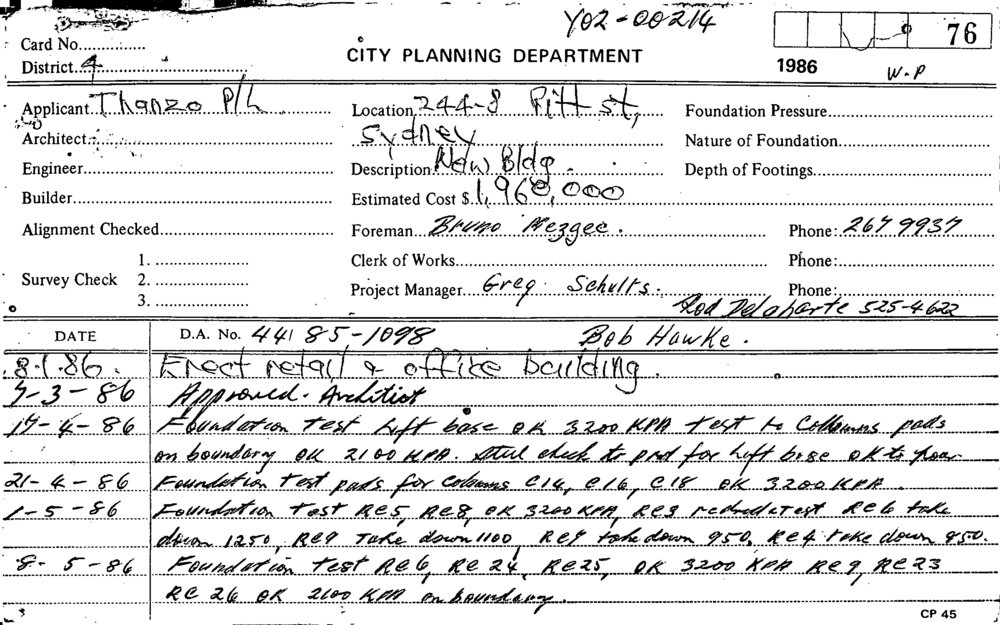 Y02-00214
Card No.
76
District 4
CITY PLANNING DEPARTMENT
1986
W.P
Applicant Thanzo P/L
Location 244-8 Pitt st,
Foundation Pressure
Architect
Sydney
Nature of Foundation
Engineer
Description New Bldg.
Depth of Footings
Builder
Estimated Cost $ 1,960,000
Alignment Checked
Foreman Bruno Mezgec.
Phone: 267 9937
1.
Clerk of Works
Phone:
Survey Check 2.
Project Manager Greg Schults.
Phone:
3.
Rod Delaharte 525-4622
DATE
D.A. No. 44 85-1098
Bob Hawke.
8.1.86. Erect retail & office building.
7-3-86 Approved.
17-4-86 Foundation test Lift base OK 3200 KPA test to Collumns pads
on boundary OK 2100 KPA. Steel check to pad for Lift base OK to pour
21-4-86 Foundation Test pads for columns C14, C16, C18 OK 3200 KPA.
1-5-86 Foundation Test RE5, RE8, OK 3200 KPA, RE3 RE6 take
down 1250, RE9 Take down 1100, take down 950, RE4 take down 850.
8-5-86 Foundation test RE6, RE24, RE25, OK 3200 KPA RE9, RE23
RE26 OK 2100 KPA on boundary.
CP 45